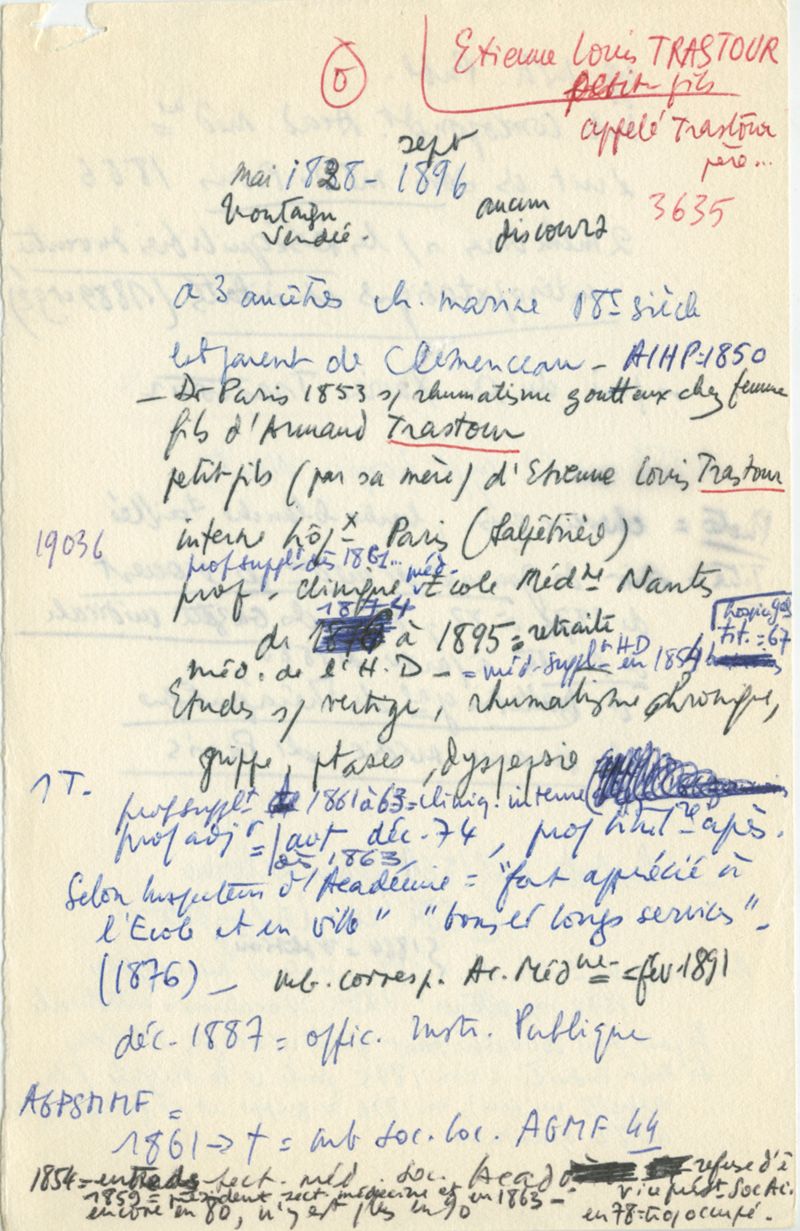 Etienne Louis TRASTOUR
petit-fils
appelé Trastour
père...
3635
mai 1828 - sept 1896
Montaigu
Vendée -
aucun
discours
a 3 ancêtres ch. marine 18e siècle
est parent de Clemenceau - AIHP = 1850
- Dr Paris 1853 s/ rhumatisme goutteux chez femme
fils d'Armand Trastour
petit-fils (par sa mère) d'Etienne Louis Trastour
19036
interne hôpx Paris (Salpêtrière)
prof supplt dès 1861...
prof. clinique méd. Ecole Médne Nantes
1874
de à 1895 = retraite
hospices
tit. = 67
méd. de l'H.D - = méd. supplt HD en 1854
Etudes s/ vertige, rhumatisme chronique,
grippe, ptoses, dyspepsie
1 T.
prof supplt 1861 à 63 = cliniq. interne
prof adjt = avt déc. 74, prof titulre après.
dès 1863
Selon Inspecteur d'Académie = "fort apprécié à
l'Ecole et en ville" "bons et longs services" -
(1876) - mb. corresp. Ac. Médne = fév 1891
déc. 1887 = offic. Instr. Publique
AGPSMMF =
1861 → † = mb Soc. loc. AGMF 44
1854 = sect. méd. Soc. Acad refuse d'ê
1859 = président sect. médecine et en 1863 - vice prést Soc Ac.
encore en 80, n'y est plus en 90 en 78 = trop occupé.